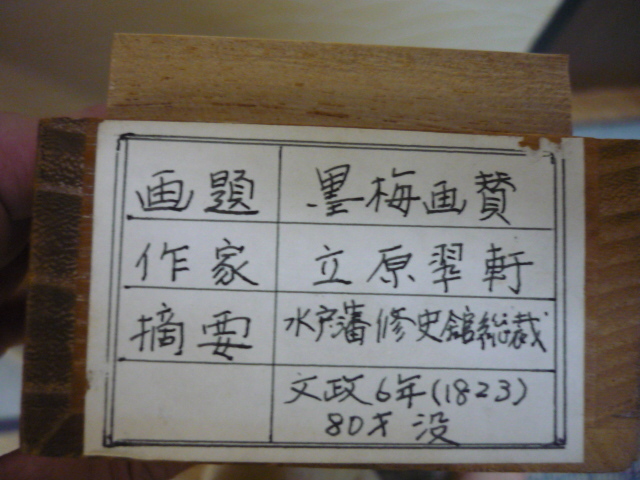 画題 墨梅画賛
作家 立原翠軒
摘要 水戸藩修史館総裁
文政6年(1823)
80才没